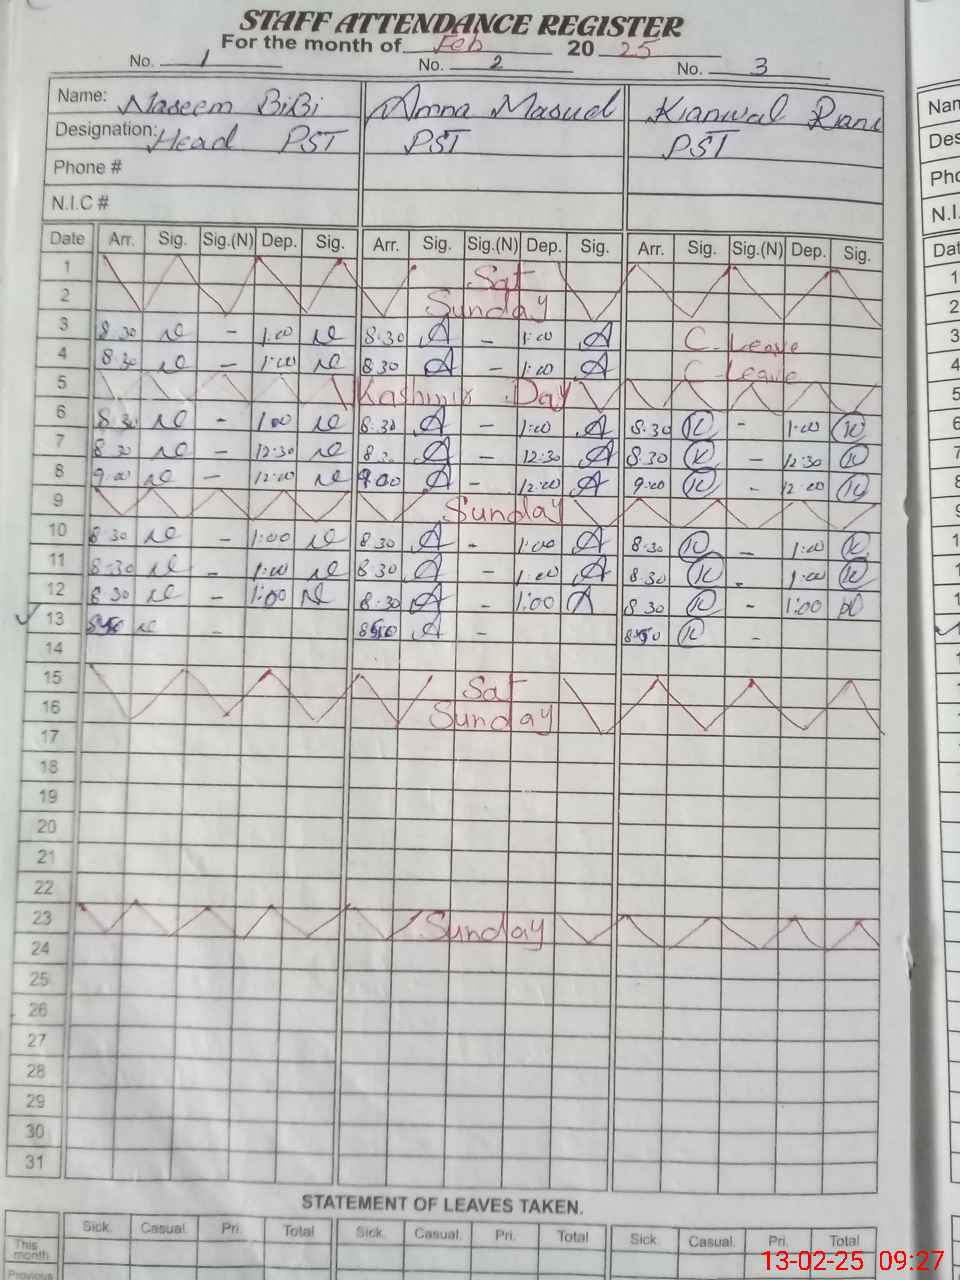 STAFF ATTENDANCE REGISTER
For the month of Feb 20 25
No. 1 No. 2 No. 3
Name: Naseem BiBi Amna Masud Kianwal Rani
Designation: Head PST PST PST
Phone #
N.I.C #
Date Arr. Sig. Sig.(N) Dep. Sig. Arr. Sig. Sig.(N) Dep. Sig. Arr. Sig. Sig.(N) Dep. Sig.
1 Sat
2 Sunday
3 8:30 - 1:00 8:30 A - 1:00 A C. Leave
4 8:30 - 1:00 8:30 A - 1:00 A C-Leave
5 Kashmir Day
6 8:30 - 1:00 8:30 A - 1:00 A 8:30 K - 1:00 K
7 8:30 - 12:30 A - 12:30 A 8:30 K - 12:30 K
8 9:00 - 12:00 9:00 A - 12:00 A 9:00 K - 12:00 K
9 Sunday
10 8:30 - 1:00 8:30 A - 1:00 A 8:30 K - 1:00 K
11 8:30 - 1:00 8:30 A - 1:00 A 8:30 K - 1:00 K
12 8:30 - 1:00 8:30 A - 1:00 A 8:30 K - 1:00
13 - A - K -
14
15 Sat
16 Sunday
17
18
19
20
21
22
23 Sunday
24
25
26
27
28
29
30
31
STATEMENT OF LEAVES TAKEN.
Sick. Casual. Pri. Total Sick. Casual. Pri. Total Sick. Casual. Pri. Total
This
month
Previous
13-02-25 09:27